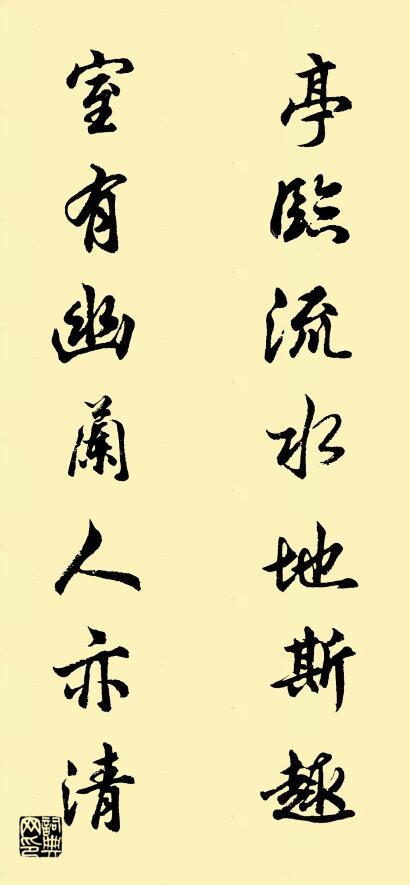 亭臨流水地斯趣
室有幽蘭人亦清